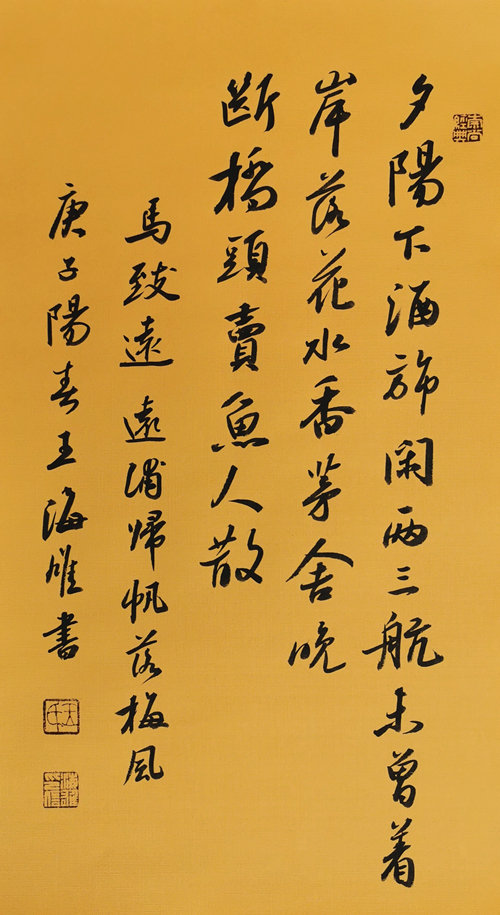 夕陽下酒斾閑兩三航未曾着
岸落花水香茅舍晚
斷橋頭賣魚人散
馬致遠 遠浦帰帆落梅風
庚子陽春王海雄書
王氏